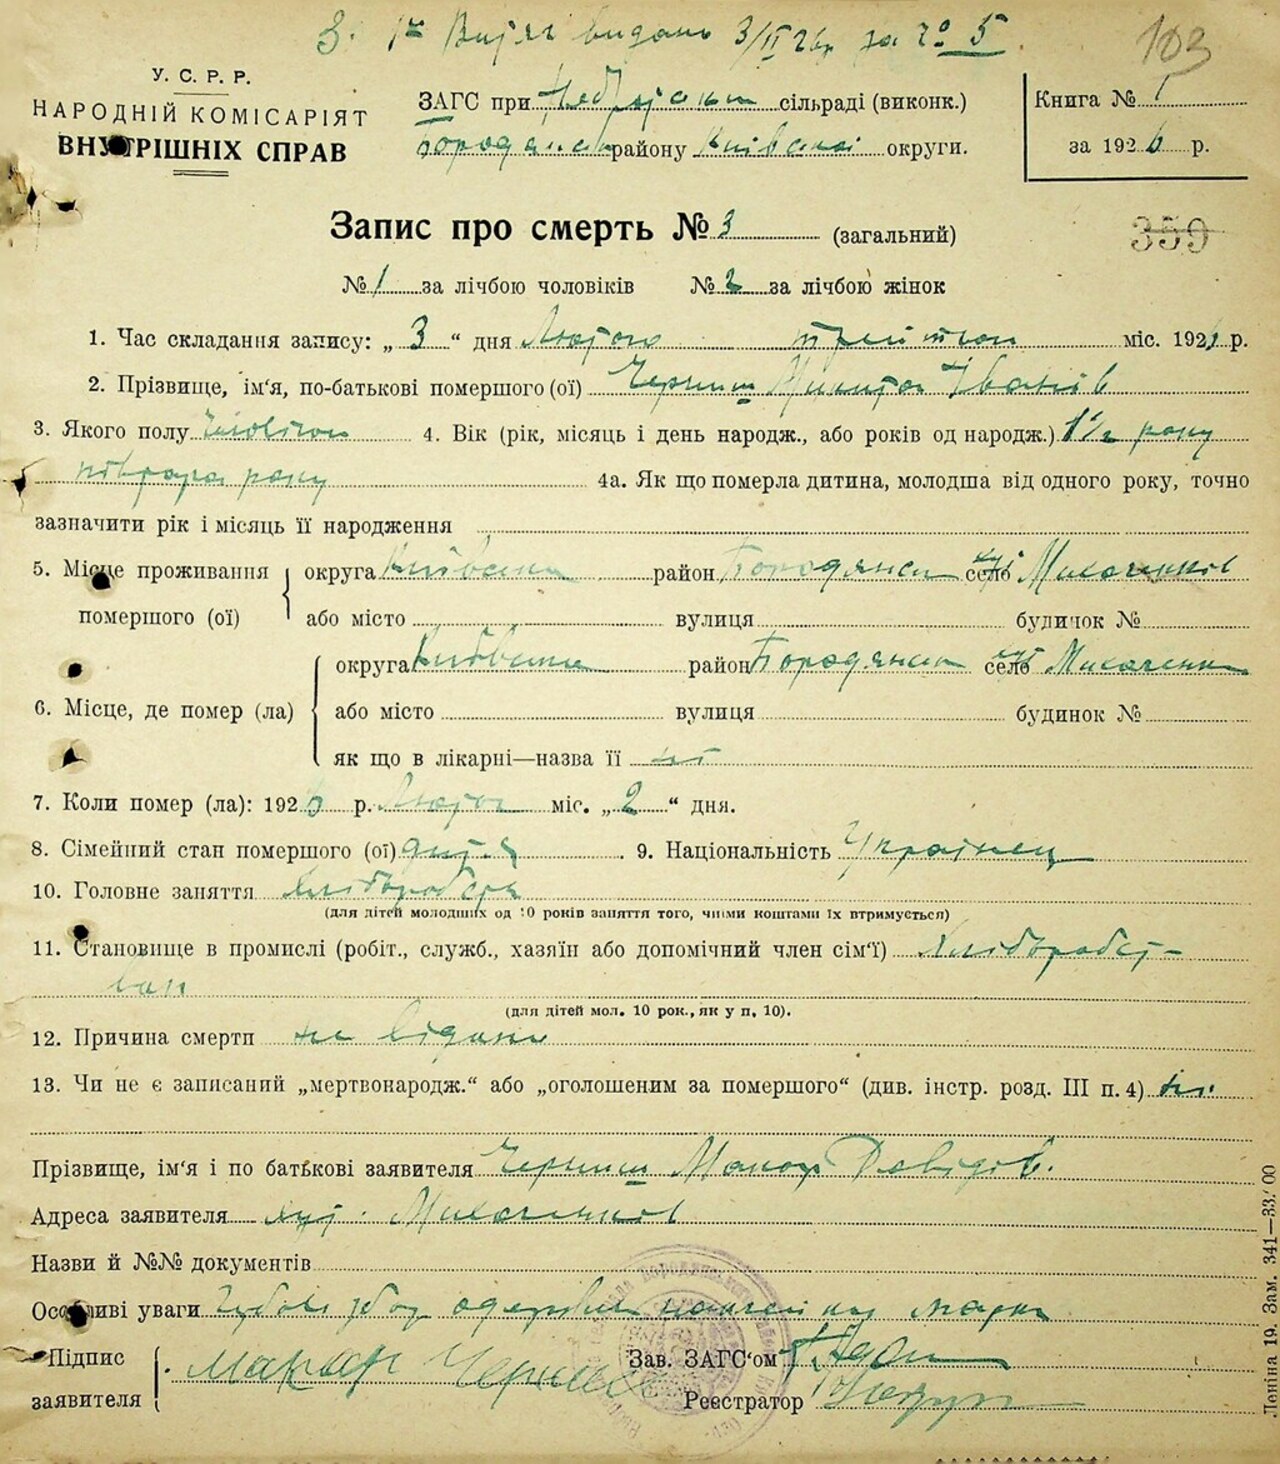 3. 1ш Витяг видано 3/II 26р за № 5
103
У. С. Р. Р.
НАРОДНІЙ КОМІСАРІЯТ
ВНУТРІШНІХ СПРАВ
ЗАГС при сільраді (виконк.)
Бородянск району Київської округи.
Книга № 1
за 1926 р.
Запис про смерть № 3 (загальний)
359
№ 1 за лічбою чоловіків № 2 за лічбою жінок
1. Час складання запису: „ 3 “ дня Лютого третього міс. 1926 р.
2. Прізвище, ім'я, по-батькові помершого (ої) Черниш Микита Іванів
3. Якого полу чоловічого 4. Вік (рік, місяць і день народж., або років од народж.) 1½ року
півтора року 4а. Як що померла дитина, молодша від одного року, точно
зазначити рік і місяць її народження
5. Місце проживання помершого (ої) округа Київська район Бородянськ село хут Михаленков
або місто вулиця будинок №
6. Місце, де помер (ла) округа Київська район Бородянськ село хут Михаленки
або місто вулиця будинок №
як що в лікарні—назва її ні
7. Коли помер (ла): 1926 р. Лютого міс. „ 2 “ дня.
8. Сімейний стан помершого (ої) дитя 9. Національність Українец
10. Головне заняття Хліборобств
(для дітей молодших од 10 років заняття того, чиїми коштами їх втримується)
11. Становище в промислі (робіт., служб., хазяїн або допомічний член сім'ї) Хліборобст-
вом
(для дітей мол. 10 рок., як у п. 10).
12. Причина смерти не відано
13. Чи не є записаний „мертвонародж.“ або „оголошеним за помершого“ (див. інстр. розд. III п. 4) ні.
Прізвище, ім'я і по батькові заявителя Черниш Макар Давидов.
Адреса заявителя хут. Михаленков
Назви й №№ документів
Особливі уваги збор марки
Підпис заявителя Макар Черниш
Зав. ЗАГС'ом
Реєстратор
Леніна 19. Зам. 341—33/00